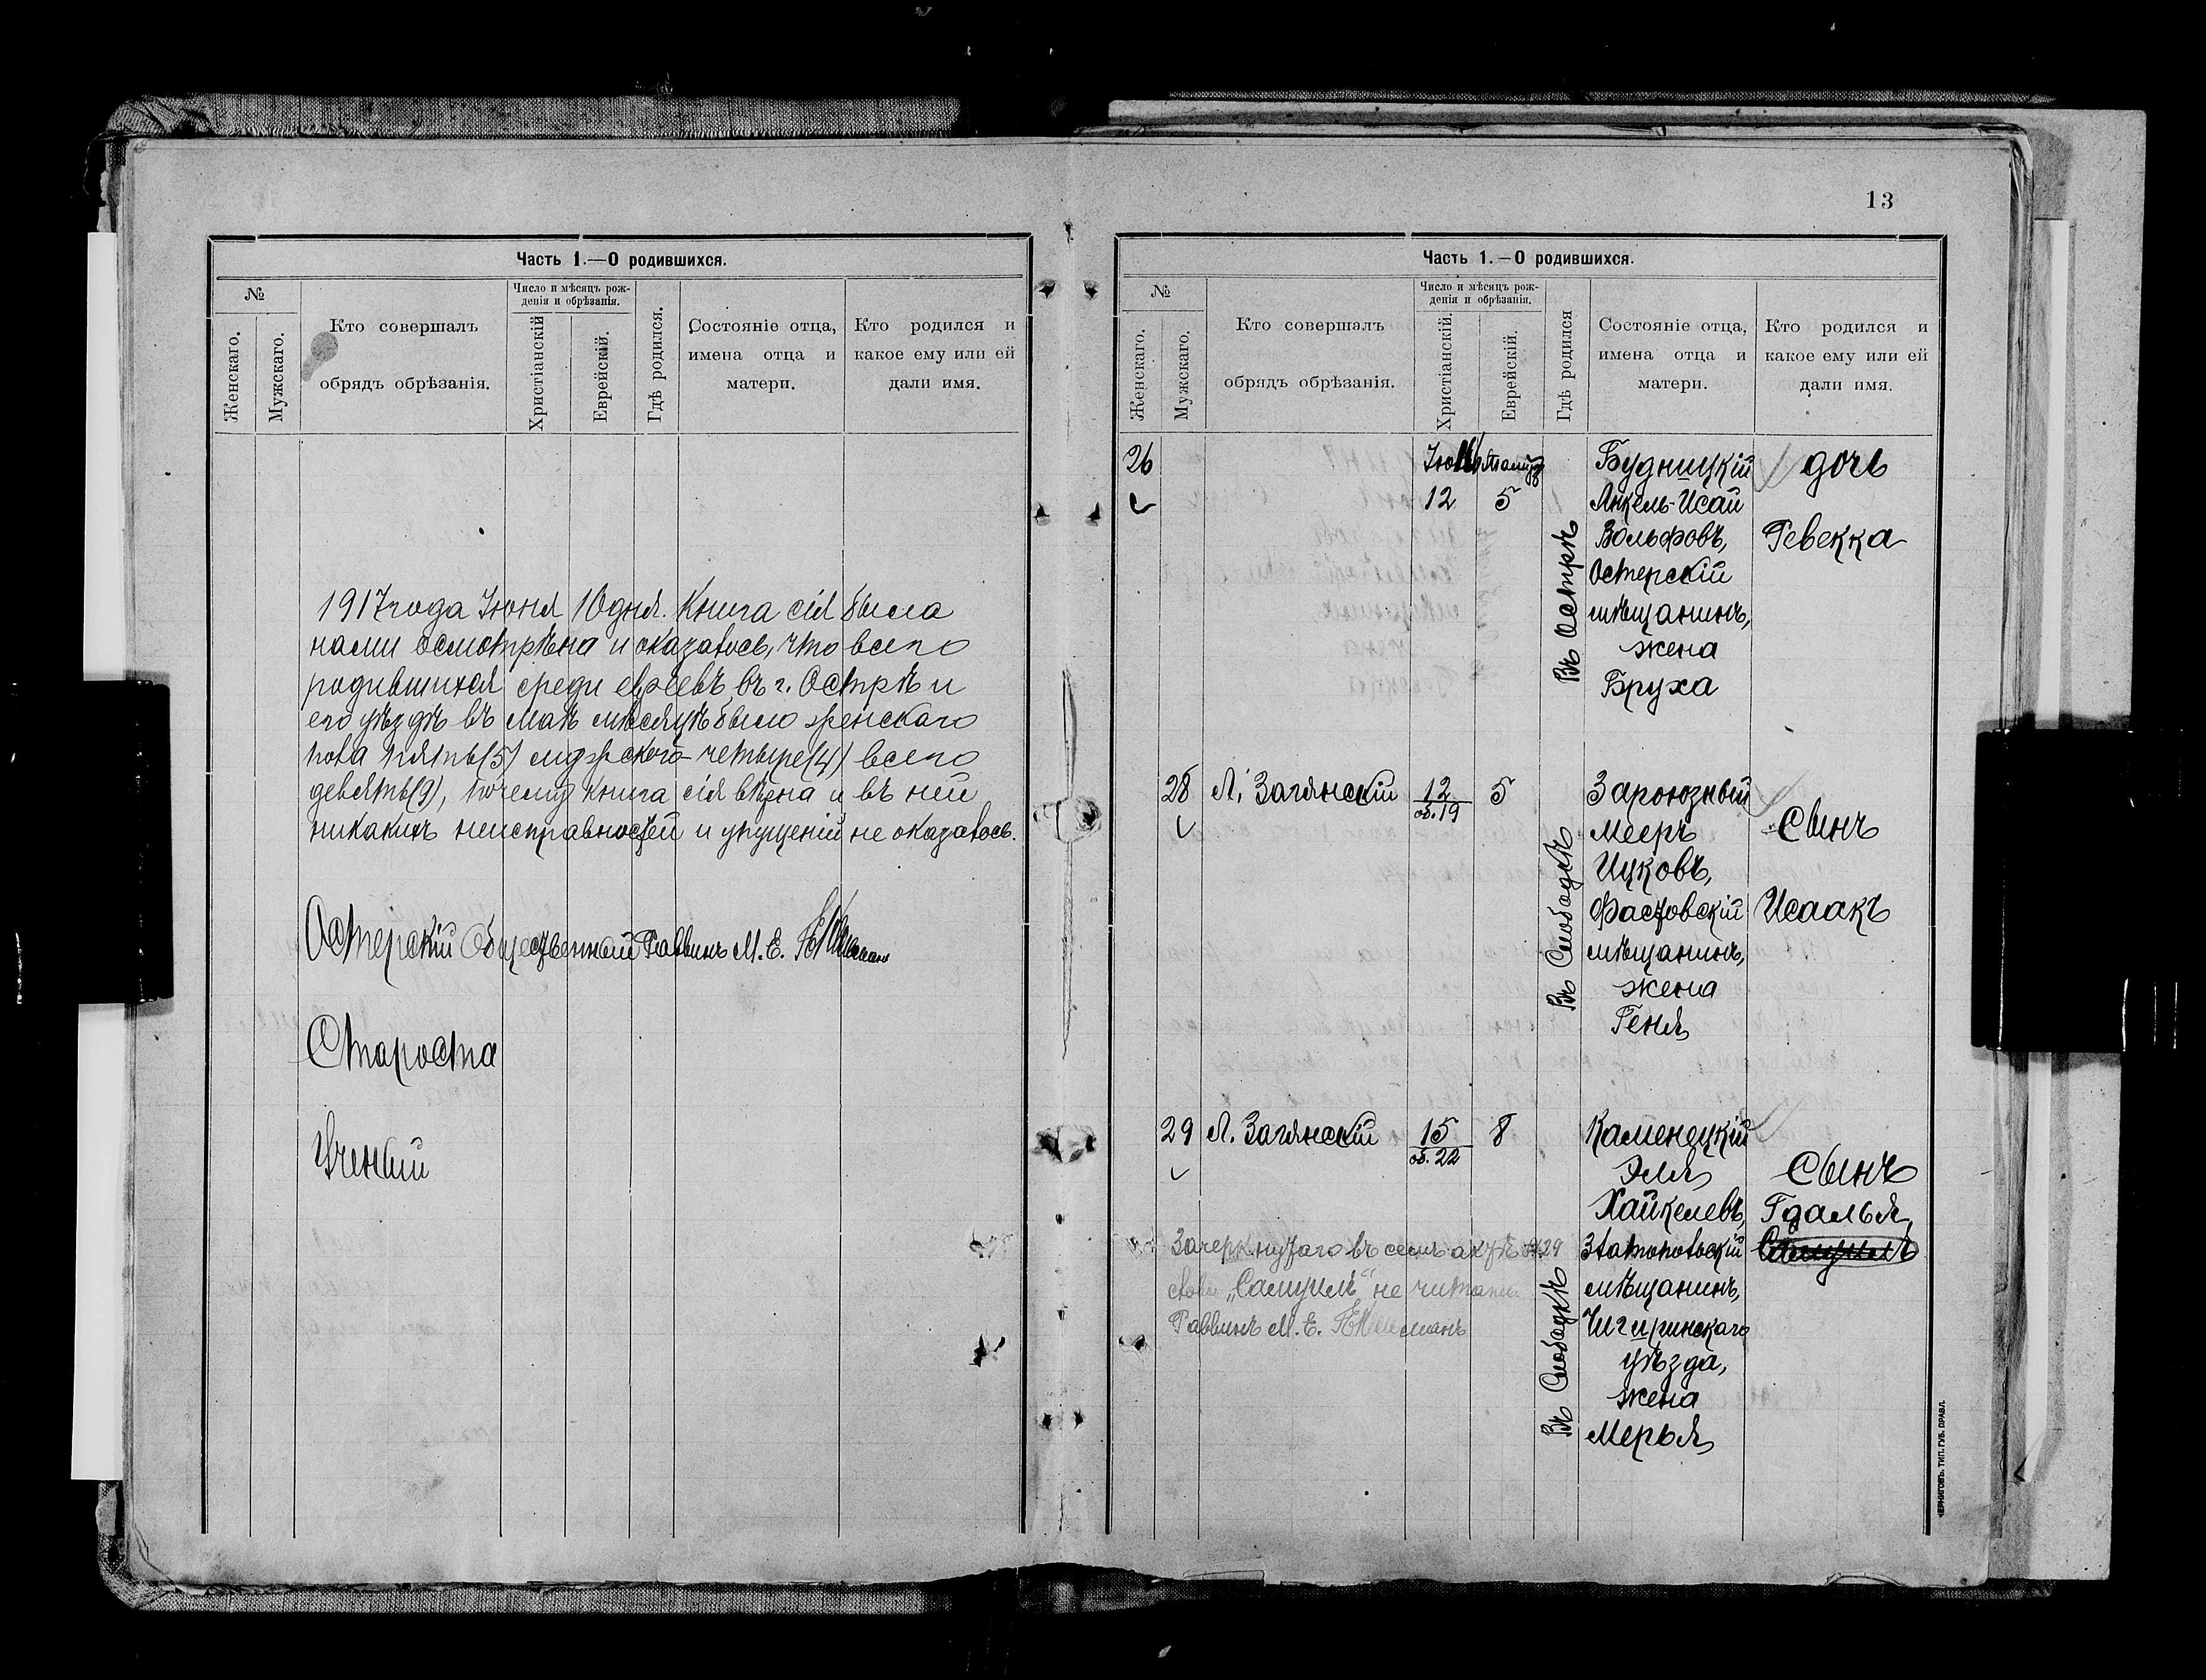 Часть 1.—О родившихся.
№
Женскаго.
Мужскаго.
Кто совершалъ
обрядъ обрѣзанія.
Число и мѣсяцъ рож-
денія и обрѣзанія.
Христіанскій
Еврейскій.
Гдѣ родился.
Состояніе отца,
имена отца и
матери.
Кто родился и
какое ему или ей
дали имя.
1917 года Іюня 10 дня. Книга сія была
нами осмотрѣна и оказалось, что всего
родившихся среди евреевъ въ г. Острѣ и
его уѣздѣ въ Маѣ мѣсяцѣ было женскаго
пола пять (5) мужского четыре (4) всего
девять (9), почему книга сія вѣрна и въ ней
никакихъ неисправностей и упущеній не оказалось.
Остерскій Общественный Раввинъ М. Е.
Староста
Ученый
13
Часть 1.—О родившихся.
№
Женскаго.
Мужскаго.
Кто совершалъ
обрядъ обрѣзанія.
Число и мѣсяцъ рож-
денія и обрѣзанія.
Христіанскій.
Еврейскій.
Гдѣ родился
Состояніе отца,
имена отца и
матери.
Кто родился и
какое ему или ей
дали имя.
26
12 5
Въ Острѣ
Будницкій
Янкель-Исай
Вольфовъ,
Остерскій
мѣщанинъ,
жена
Бруха
дочь
Ревекка
28 Л. Загянскій 12 5
об. 19
Въ Слободкѣ
Зароюзный
Мееръ
Ицковъ,
Фастовскій
мѣщанинъ,
жена
Геня
Сынъ
Исаакъ
29 Л. Загянскій 15 8
об. 22
Въ Слободкѣ
Каменецкій
Эля
Хайкелевъ,
Златопольскій
мѣщанинъ,
Чигиринскаго
уѣзда,
жена
Мерья
Сынъ
Гдалья
Самуилъ
Зачеркнутаго въ семъ актѣ № 29
слова „Самуилъ" не читать
Раввинъ М. Е.
ЧЕРНИГОВЪ. ТИП. ГУБ. ПРАВЛ.